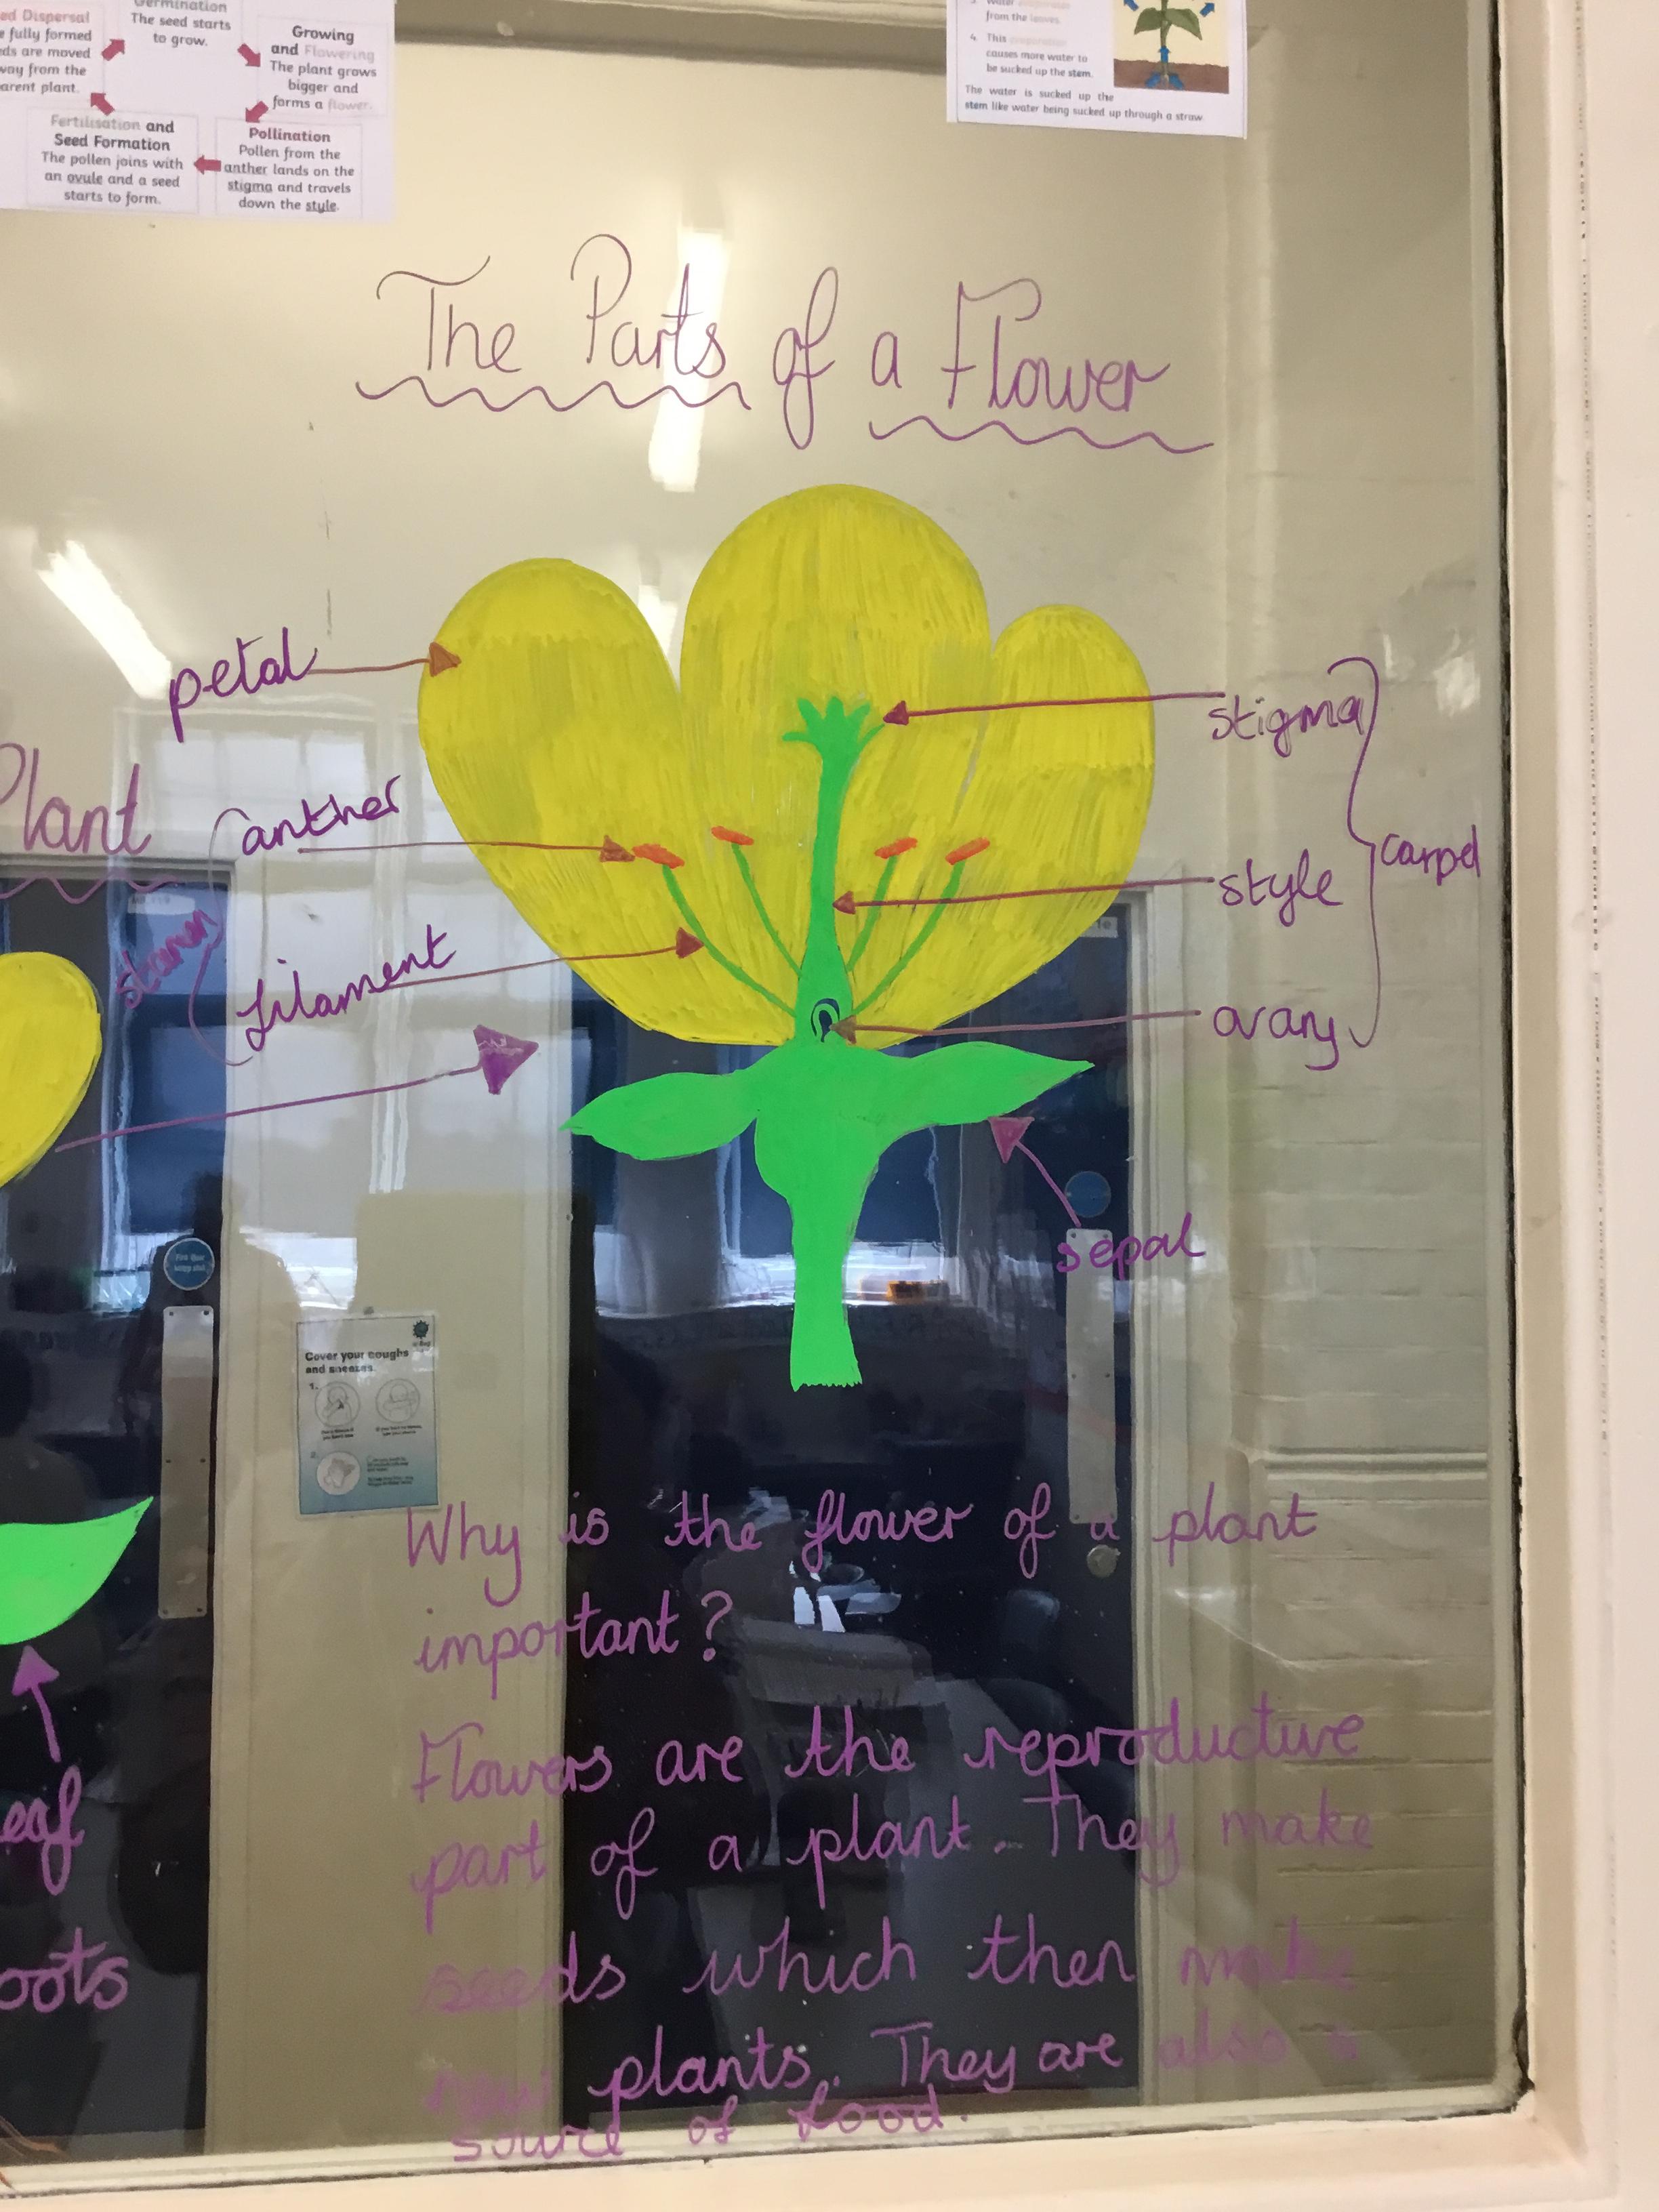 ed Dispersal
e fully formed
ds are moved
way from the
arent plant.
Germination
The seed starts
to grow.
Growing
and Flowering
The plant grows
bigger and
forms a flower.
Fertilisation and
Seed Formation
The pollen joins with
an ovule and a seed
starts to form.
Pollination
Pollen from the
anther lands on the
stigma and travels
down the style.
from the leaves.
4. This evaporation
causes more water to
be sucked up the stem.
The water is sucked up the
stem like water being sucked up through a straw.
The Parts of a Flower
petal
anther
stamen
filament
stigma
style
ovary
carpel
sepal
Plant
eaf
oots
Fire Door
keep shut
Cover your coughs
and sneezes.
1.
2.
Why is the flower of a plant
important?
Flowers are the reproductive
part of a plant. They make
seeds which then make
new plants. They are also a
source of food.